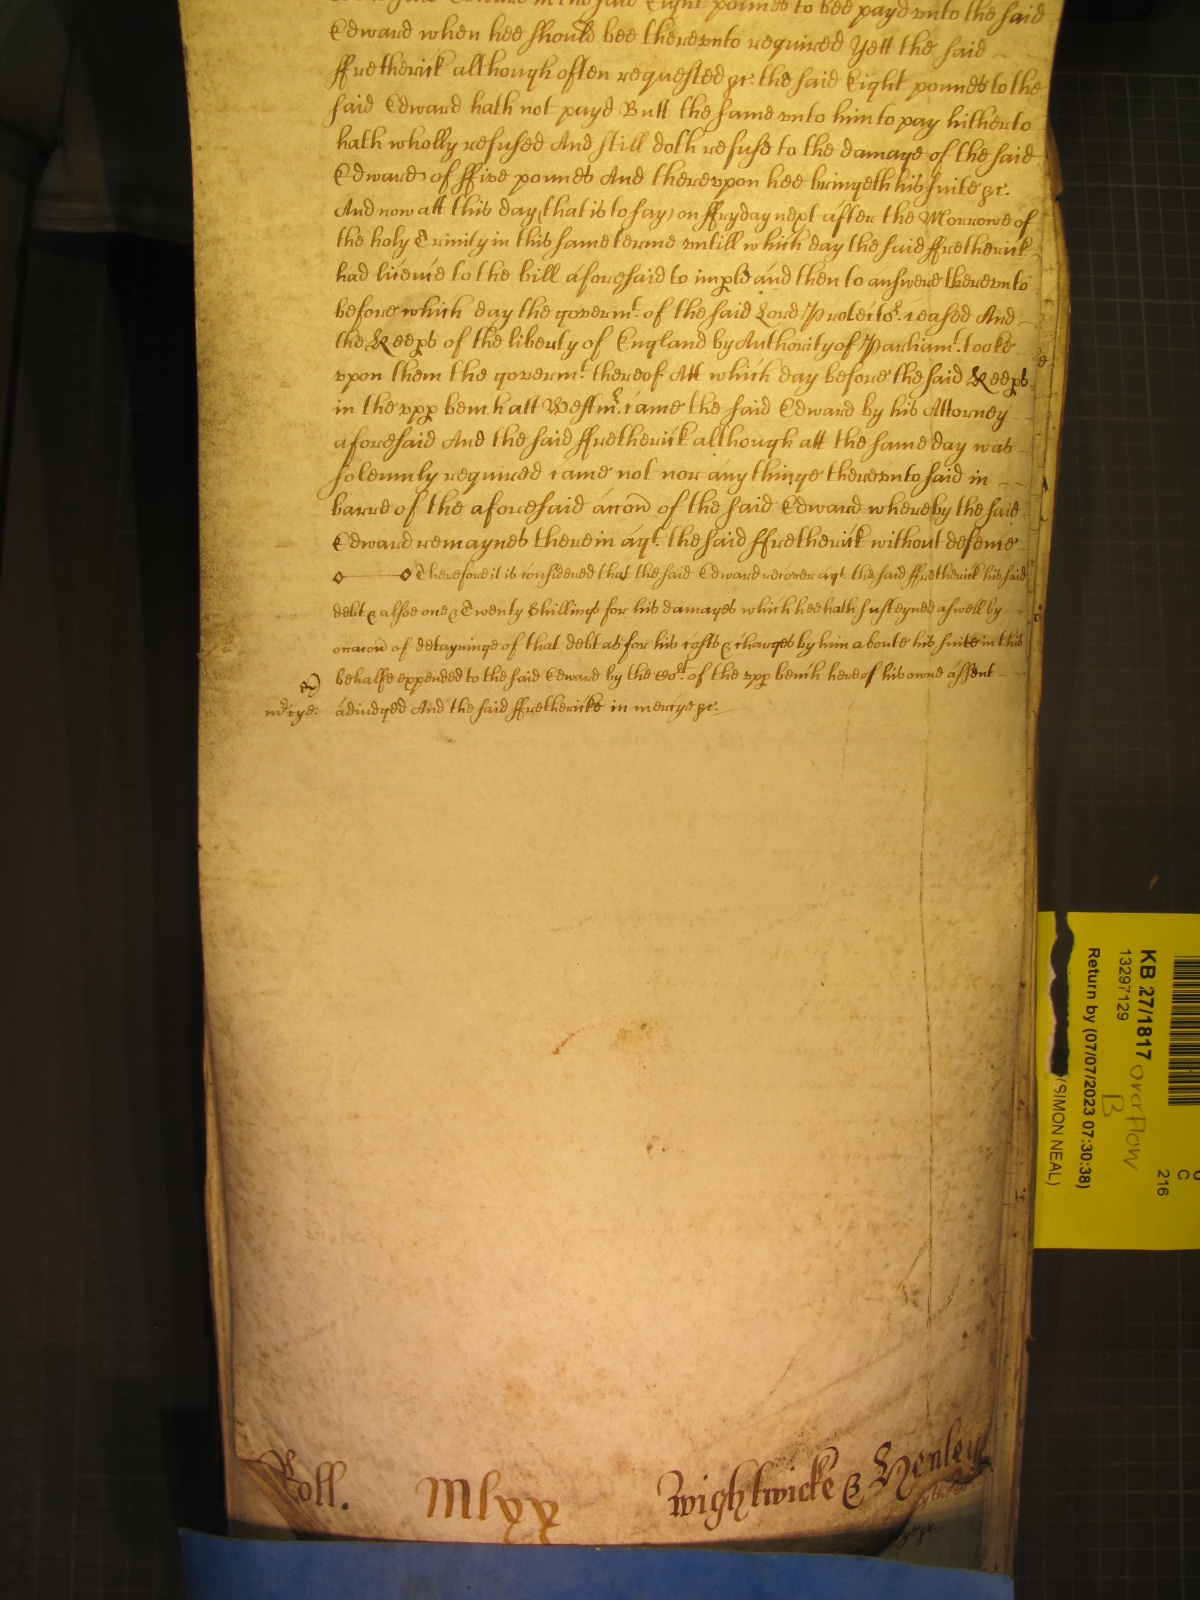 Eight pounds to bee payd vnto the said
Edward when hee should bee therevnto required Yett the said
ffretherick although often requested &c. the said Eight pounds to the
said Edward hath not payd Butt the same vnto him to pay hitherto
hath wholly refused And still doth refuse to the damage of the said
Edward of ffive pounds And therevpon hee bringeth his suite &c.
And now att this day (that is to say) on ffryday next after the Morrowe of
the holy Trinity in this same terme vntill which day the said ffretherick
had licence to the bill aforesaid to imple and then to answere therevnto
before which day the governt. of the said Lord Protector. ceased And
the Keeps of the liberty of England by Authority of Parliamt. tooke
vpon them the governt. thereof Att which day before the said Keeps
in the vpp bench att Westmr. came the said Edward by his Attorney
aforesaid And the said ffretherick although att the same day was
solemnly required came not nor any thinge therevnto said in
barre of the aforesaid accon of the said Edward whereby the said
Edward remaynes therein agt. the said ffretherick without defence
Therefore it is considered that the said Edward recover agt. the said ffretherick his said
debt & alsoe one & Twenty Shillings for his damages which hee hath susteyned aswell by
occacon of detayninge of that debt as for his costs & charges by him aboute his suite in this
behalfe expended to the said Edward by the Cot. of the vpp bench here of his owne assent
mcye. adiudged And the said ffretherick in mercye &c.
Roll. Mlxx Wightwicke & Henley
KB 27/1817 overflow
B
13297129
Return by (07/07/2023 07:30:38)
(SIMON NEAL)
C
216